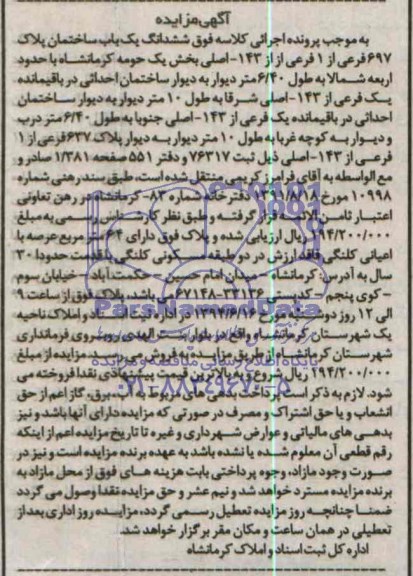 آگهی مزایده
به موجب پرونده اجرائی کلاسه فوق ششدانگ یک باب ساختمان پلاک
۶۹۷ فرعی از ۱ فرعی از از ۱۴۳-اصلی بخش یک حومه کرمانشاه با حدود
اربعه شمالا به طول ۶/۴۰ متر دیوار به دیوار ساختمان احداثی در باقیمانده
یک فرعی از ۱۴۳-اصلی شرقا به طول ۱۰ متر دیوار به دیوار ساختمان
احداثی در باقیمانده یک فرعی از ۱۴۳-اصلی جنوبا به طول ۶/۴۰ متر درب
و دیوار به کوچه غربا به طول ۱۰ متر دیوار به دیوار پلاک ۶۳۷ فرعی از ۱
فرعی از ۱۴۳-اصلی ذیل ثبت ۷۶۳۱۷ و دفتر ۵۵۱ صفحه ۱/۳۸۱ صادر و
مع الواسطه به آقای فرامرز کریمی منتقل شده است، طبق سند رهنی شماره
۱۰۹۹۸ مورخ دفترخانه شماره ۸۳-کرمانشاه در رهن تعاونی
اعتبار ثامن الائمه قرار گرفته و طبق نظر کارشناس رسمی به مبلغ
۲۹۴/۲۰۰/۰۰۰ ریال ارزیابی شده و پلاک فوق دارای ۶۴ متر مربع عرصه با
اعیانی کلنگی فاقد ارزش در دو طبقه مسکونی کلنگی با قدمت حدودا ۳۰
سال به آدرس: کرمانشاه-میدان امام حسین-حکمت آباد-خیابان سوم
-کوی پنجم-کدپستی ۳۳۱۳۶-۶۷۱۴۸ می باشد، پلاک فوق از ساعت ۹
الی ۱۲ روز دوشنبه مورخ ۱۳۹۴/۶/۱۶ در اداره اسناد و املاک ناحیه
یک شهرستان کرمانشاه واقع در بلوار بنت الهدی روبروی فرمانداری
شهرستان کرمانشاه از طریق مزایده به فروش می رسد مزایده از مبلغ
۲۹۴/۲۰۰/۰۰۰ ریال شروع و به بالاترین قیمت پیشنهادی نقدا فروخته می
شود. لازم به ذکر است پرداخت بدهی های مربوط به آب، برق، گاز اعم از حق
انشعاب و یا حق اشتراک و مصرف در صورتی که مزایده دارای آنها باشد و نیز
بدهی های مالیاتی و عوارض شهرداری و غیره تا تاریخ مزایده اعم از اینکه
رقم قطعی آن معلوم شده یا نشده باشد به عهده برنده مزایده است و نیز در
صورت وجود مازاد، وجوه پرداختی بابت هزینه های فوق از محل مازاد به
برنده مزایده مسترد خواهد شد و نیم عشر و حق مزایده نقدا وصول می گردد
ضمنا چنانچه روز مزایده تعطیل رسمی گردد، مزایده روز اداری بعد از
تعطیلی در همان ساعت و مکان مقرر برگزار خواهد شد.
اداره کل ثبت اسناد و املاک کرمانشاه
ParsNamadData
پایگاه اطلاع رسانی مناقصه و مزایده
۰۲۱-۸۸۳۴۹۶۷۰-۵